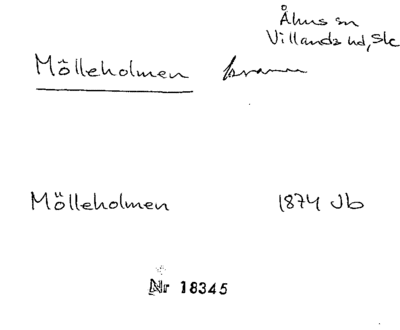 Åhus sn
Villands hd, Skå
Mölleholmen
Mölleholmen 1874 Jb
Nr 18345